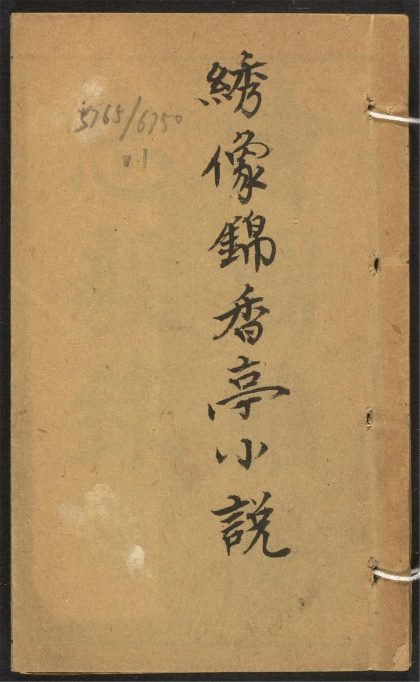 綉像錦香亭小説
5765/6750
v.1